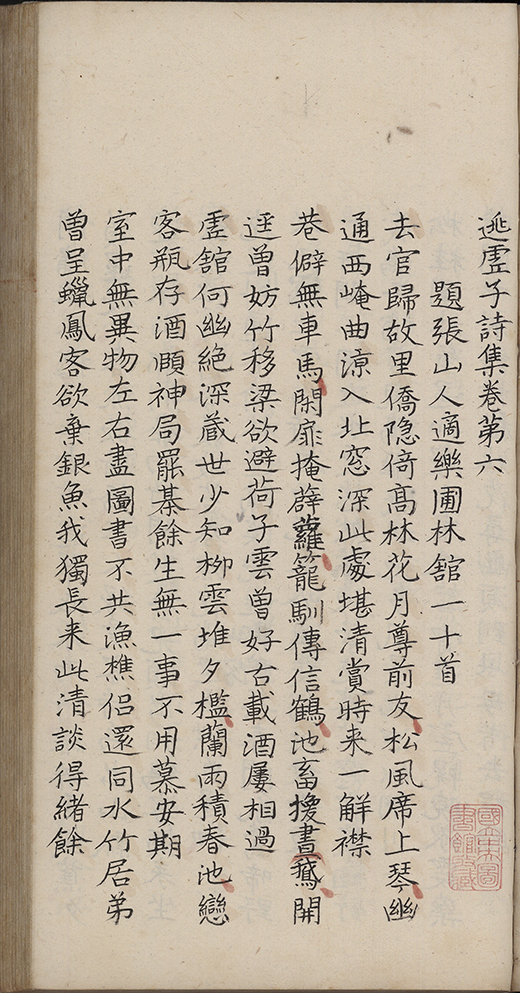 逃虛子詩集卷第六
題張山人適樂圃林館一十首
去官歸故里僑隐倚髙林花月尊前友松風席上琴幽
通西崦曲涼入北窓深此處堪清賞時来一解襟
巷僻無車馬閑扉掩薜蘿籠馴傳信鶴池畜換書鵞開
逕曽妨竹移梁欲避荷子雲曽好古載酒屢相過
虛舘何幽絶深蔵世少知栁雲堆夕檻蘭雨積春池戀
客瓶存酒頤神局罷棊餘生無一事不用慕安期
室中無異物左右盡圖書不共漁樵侣還同水竹居弟
曽呈蠟鳳客欲棄銀魚我獨長来此清談得緒餘
國立東圖書館收藏